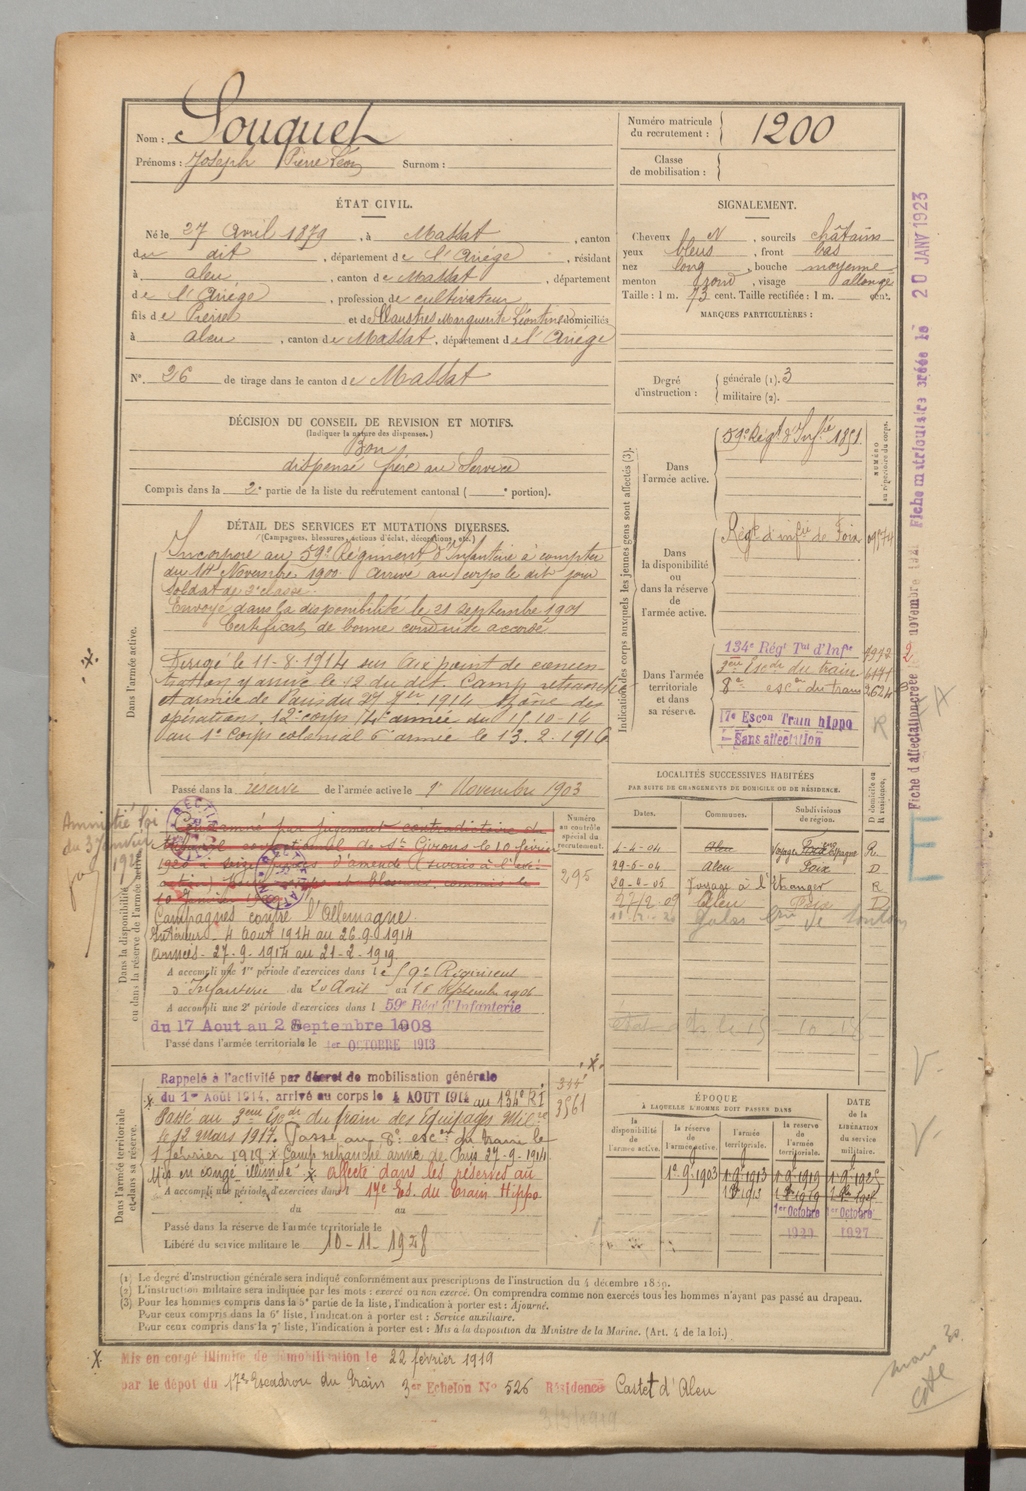 Nom : Souquet
Prénoms : Joseph Pierre Léon Surnom :
Numéro matricule du recrutement : 1200
Classe de mobilisation :
ÉTAT CIVIL.
Né le 27 Avril 1879, à Massat, canton
du dit, département de l'Ariège, résidant
à Aleu, canton de Massat, département
de l'Ariège, profession de cultivateur
fils de Pierre et de Marguerite Léontine domiciliés
à Aleu, canton de Massat, département de l'Ariège
N° 26 de tirage dans le canton de Massat
SIGNALEMENT.
Cheveux N, sourcils châtains
yeux bleus, front bas
nez long, bouche moyenne
menton rond, visage allongé
Taille : 1 m. 73 cent. Taille rectifiée : 1 m. cent.
MARQUES PARTICULIÈRES :
Degré d'instruction : générale (1). 3
militaire (2).
DÉCISION DU CONSEIL DE REVISION ET MOTIFS.
(Indiquer la nature des dispenses.)
Bon
dispensé frère au Service
Compris dans la 2e partie de la liste du recrutement cantonal ( portion).
DÉTAIL DES SERVICES ET MUTATIONS DIVERSES.
(Campagnes, blessures, actions d'éclat, décorations, etc.)
Dans l'armée active.
Incorporé au 59e Régiment d'Infanterie à compter
du 14 Novembre 1900. Arrivé au corps le dit jour
Soldat de 2e classe.
Envoyé dans la disponibilité le 21 septembre 1901
Certificat de bonne conduite accordé
Dirigé le 11-8-1914 sur
y arrive le 12 du dit. Camp retranché
et armée de Paris du 27 1914 Zône des
opérations. 12e corps 4e armée du 15.10-14
au 1er Corps colonial 6e armée le 13.2.1916
Passé dans la réserve de l'armée active le 1er Novembre 1903
Indication des corps auxquels les jeunes gens sont affectés (3).
Dans l'armée active.
59e Régt d'Infie 1851
NUMÉRO au répertoire du corps.
Dans la disponibilité ou dans la réserve de l'armée active.
Régt d'infie de Foix
Dans l'armée territoriale et dans sa réserve.
134e Régt Tal d'Infie
3ème Escdn du train
8e escon du train
17e Escon Train hippo
Sans affectation
R
LOCALITÉS SUCCESSIVES HABITÉES
PAR SUITE DE CHANGEMENTS DE DOMICILE OU DE RÉSIDENCE.
Dates. Communes. Subdivisions de région. D domicile ou R résidence.
4-4-04 Aleu Foix Voyage Espagne R
29-5-04 Aleu Foix D
Voyage à l'Etranger R
Aleu Foix D
Amnistié loi
du 3 janvier
Dans la disponibilité ou dans la réserve de l'armée active.
Numéro au contrôle spécial du recrutement.
295
Condamné par jugement contradictoire du
Tribunal correctionnel de St Girons le 10 février
Campagnes contre l'Allemagne
Intérieur - 4 Aout 1914 au 26.9.1914
Armées - 27-9-1914 au 21-2-1919
A accompli une 1re période d'exercices dans le 59e Régiment
d'Infanterie du 20 Août au 16 Septembre 1906
A accompli une 2e période d'exercices dans l 59e Régt d'Infanterie
du 17 Aout au 2 Septembre 1908
Passé dans l'armée territoriale le 1er OCTOBRE 1913
Dans l'armée territoriale et dans sa réserve.
Rappelé à l'activité par décret de mobilisation générale
du 1er Août 1914, arrivé au corps le 4 AOUT 1914 au 134e RI
Passé au 3ème Escdn du train des Equipages Milres
le 12 mars 1917. Passé au 8e escon du train le
1 février 1918 x Camp retranché armée de Paris 27-9-1914
Mis en congé illimité x affecté dans les réserves au
A accompli une période d'exercices dans l 17e Es. du Train Hippo
du au
Passé dans la réserve de l'armée territoriale le
Libéré du service militaire le 10-11-1928
3561
ÉPOQUE
À LAQUELLE L'HOMME DOIT PASSER DANS
la disponibilité de l'armée active. la réserve de l'armée active. l'armée territoriale. la réserve de l'armée territoriale. DATE de la LIBÉRATION du service militaire.
1er.9.1903 1er.9.1913 1er.9.1919 1er.9.1925
1er Octobre 1er Octobre
1927
(1) Le degré d'instruction générale sera indiqué conformément aux prescriptions de l'instruction du 4 décembre 1889.
(2) L'instruction militaire sera indiquée par les mots : exercé ou non exercé. On comprendra comme non exercés tous les hommes n'ayant pas passé au drapeau.
(3) Pour les hommes compris dans la 5e partie de la liste, l'indication à porter est : Ajourné.
Pour ceux compris dans la 6e liste, l'indication à porter est : Service auxiliaire.
Pour ceux compris dans la 7e liste, l'indication à porter est : Mis à la disposition du Ministre de la Marine. (Art. 4 de la loi.)
x Mis en congé illimité de démobilisation le 22 février 1919
par le dépot du 17e Escadron du Train 3er Echelon No 526 Résidence Castet d'Aleu
Fiche matriculaire créée le 20 JANV 1923
Fiche d'affectation créée le 2 novembre
mars 30